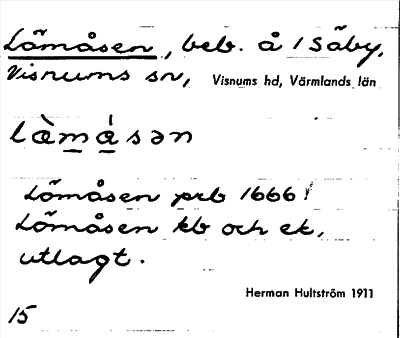 Lömåsen, beb. å 1 Säby,
Visnums sn, Visnums hd, Värmlands län
lὰmásən
Lömåsen prb 1666!
Lömåsen kb och ek,
utlagt.
Herman Hultström 1911
15